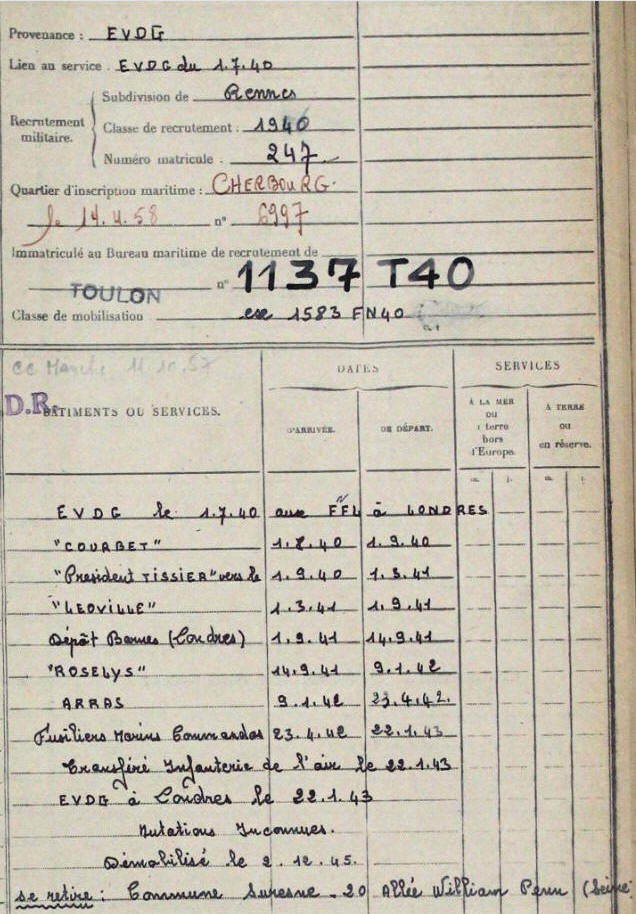 Provenance : EVDG
Lien au service . EVDG du 1.7.40
Recrutement militaire.
Subdivision de Rennes
Classe de recrutement : 1940
Numéro matricule : 247
Quartier d'inscription maritime : CHERBOURG.
le 14.4.58 n° 6997
Immatriculé au Bureau maritime de recrutement de
TOULON n° 1137 T40
Classe de mobilisation 1583 FN40
cc Marche 11.10.57
D.R.
BÂTIMENTS OU SERVICES.
DATES
D'ARRIVÉE.
DE DÉPART.
SERVICES
À LA MER
ou
à terre
hors
d'Europe.
À TERRE
ou
en réserve.
m. j. m. j.
EVDG le 1.7.40 aux FNFL à LONDRES
"COURBET" 1.7.40 1.9.40
"President TISSIER" vers le 1.9.40 1.3.41
"LEOVILLE" 1.3.41 1.9.41
Dépôt Barnes (Londres) 1.9.41 14.9.41
"ROSELYS" 14.9.41 9.1.42
ARRAS 9.1.42 23.4.42.
Fusiliers Marins Commandos 23.4.42 22.1.43
Transféré Infanterie de l'air le 22.1.43
EVDG à Londres le 22.1.43
Mutations Inconnues.
Démobilisé le 2.12.45.
se retire : Commune Suresne - 20 Allée William Penn (Seine